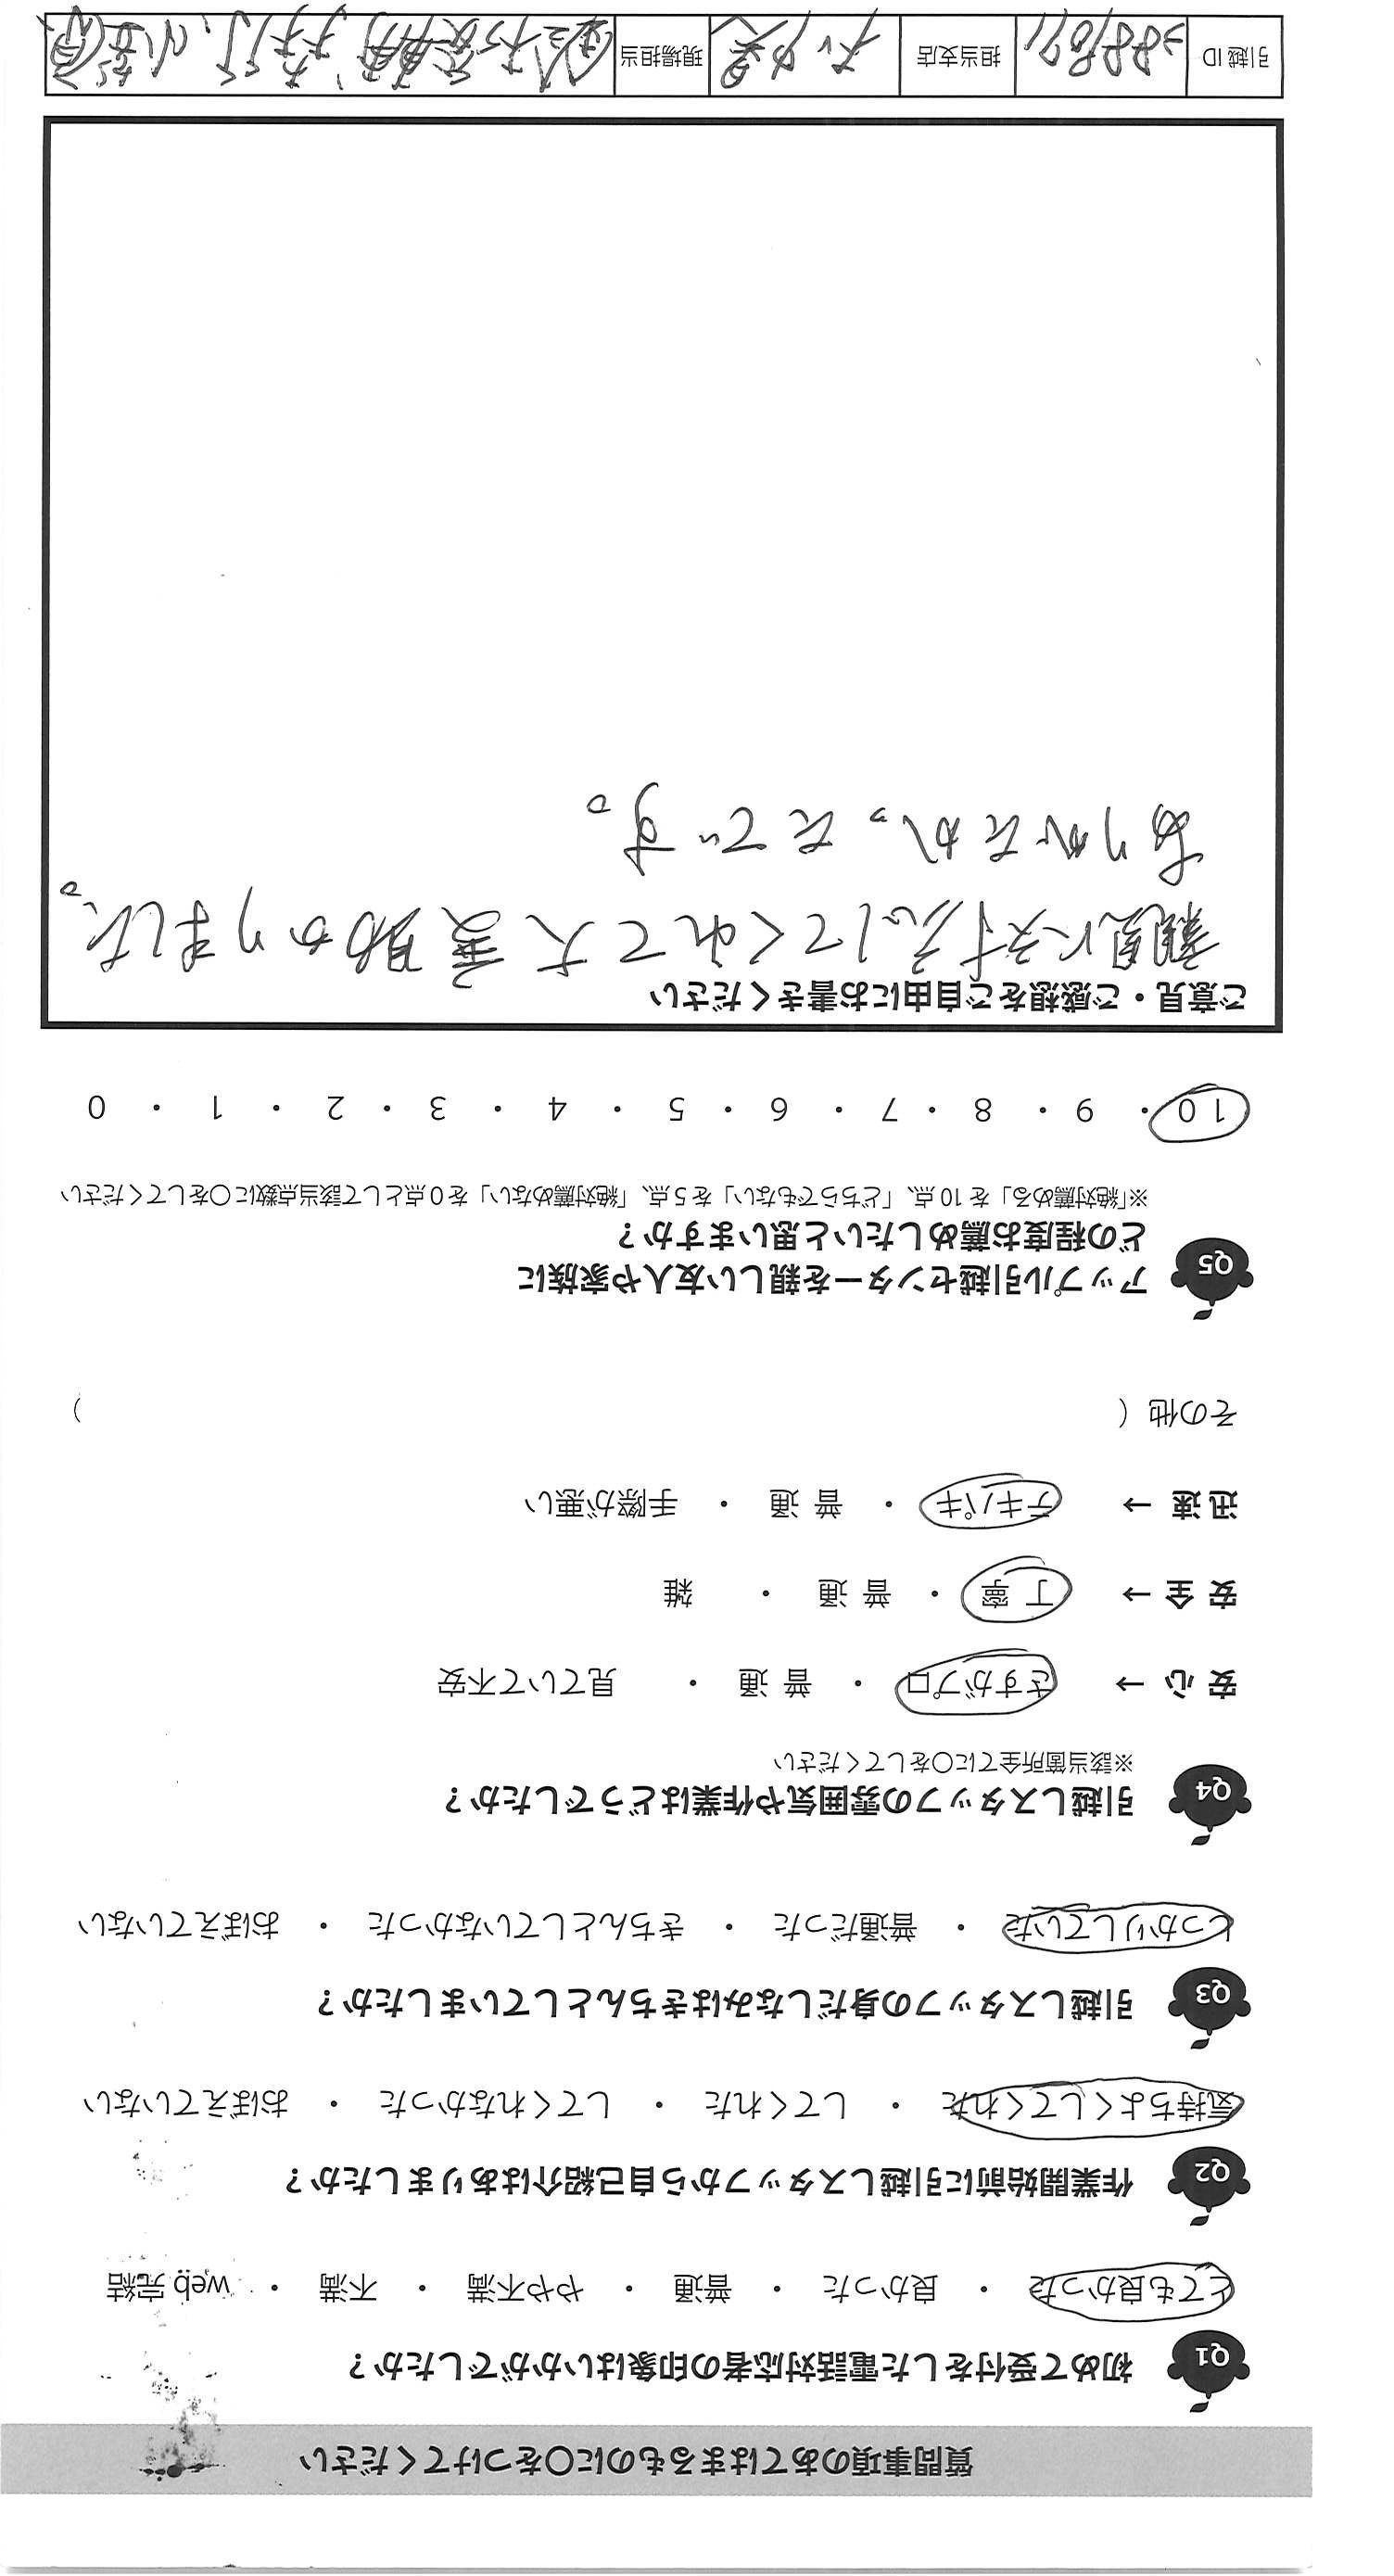 質問事項のあてはまるものに○をつけてください
Q1 初めて受付をした電話対応者の印象はいかがでしたか？
とても良かった ・ 良かった ・ 普通 ・ やや不満 ・ 不満 ・ web 完結
Q2 作業開始前に引越しスタッフから自己紹介はありましたか？
気持ちよくしてくれた ・ してくれた ・ してくれなかった ・ おぼえていない
Q3 引越しスタッフの身だしなみはきちんとしていましたか？
しっかりしていた ・ 普通だった ・ きちんとしていなかった ・ おぼえていない
Q4 引越しスタッフの雰囲気や作業はどうでしたか？
※該当箇所全てに○をしてください
安 心 → さすがプロ ・ 普 通 ・ 見ていて不安
安 全 → 丁 寧 ・ 普 通 ・ 雑
迅 速 → テキパキ ・ 普 通 ・ 手際が悪い
その他（ ）
Q5 アップル引越センターを親しい友人や家族に
どの程度お薦めしたいと思いますか？
※「絶対薦める」を 10 点、「どちらでもない」を 5 点、「絶対薦めない」を 0 点として該当点数に○をしてください
10 ・ 9 ・ 8 ・ 7 ・ 6 ・ 5 ・ 4 ・ 3 ・ 2 ・ 1 ・ 0
ご意見・ご感想をご自由にお書きください
親身に対応してくれて大変助かりました。
ありがたかったです。
引越 ID 担当支店 現場担当